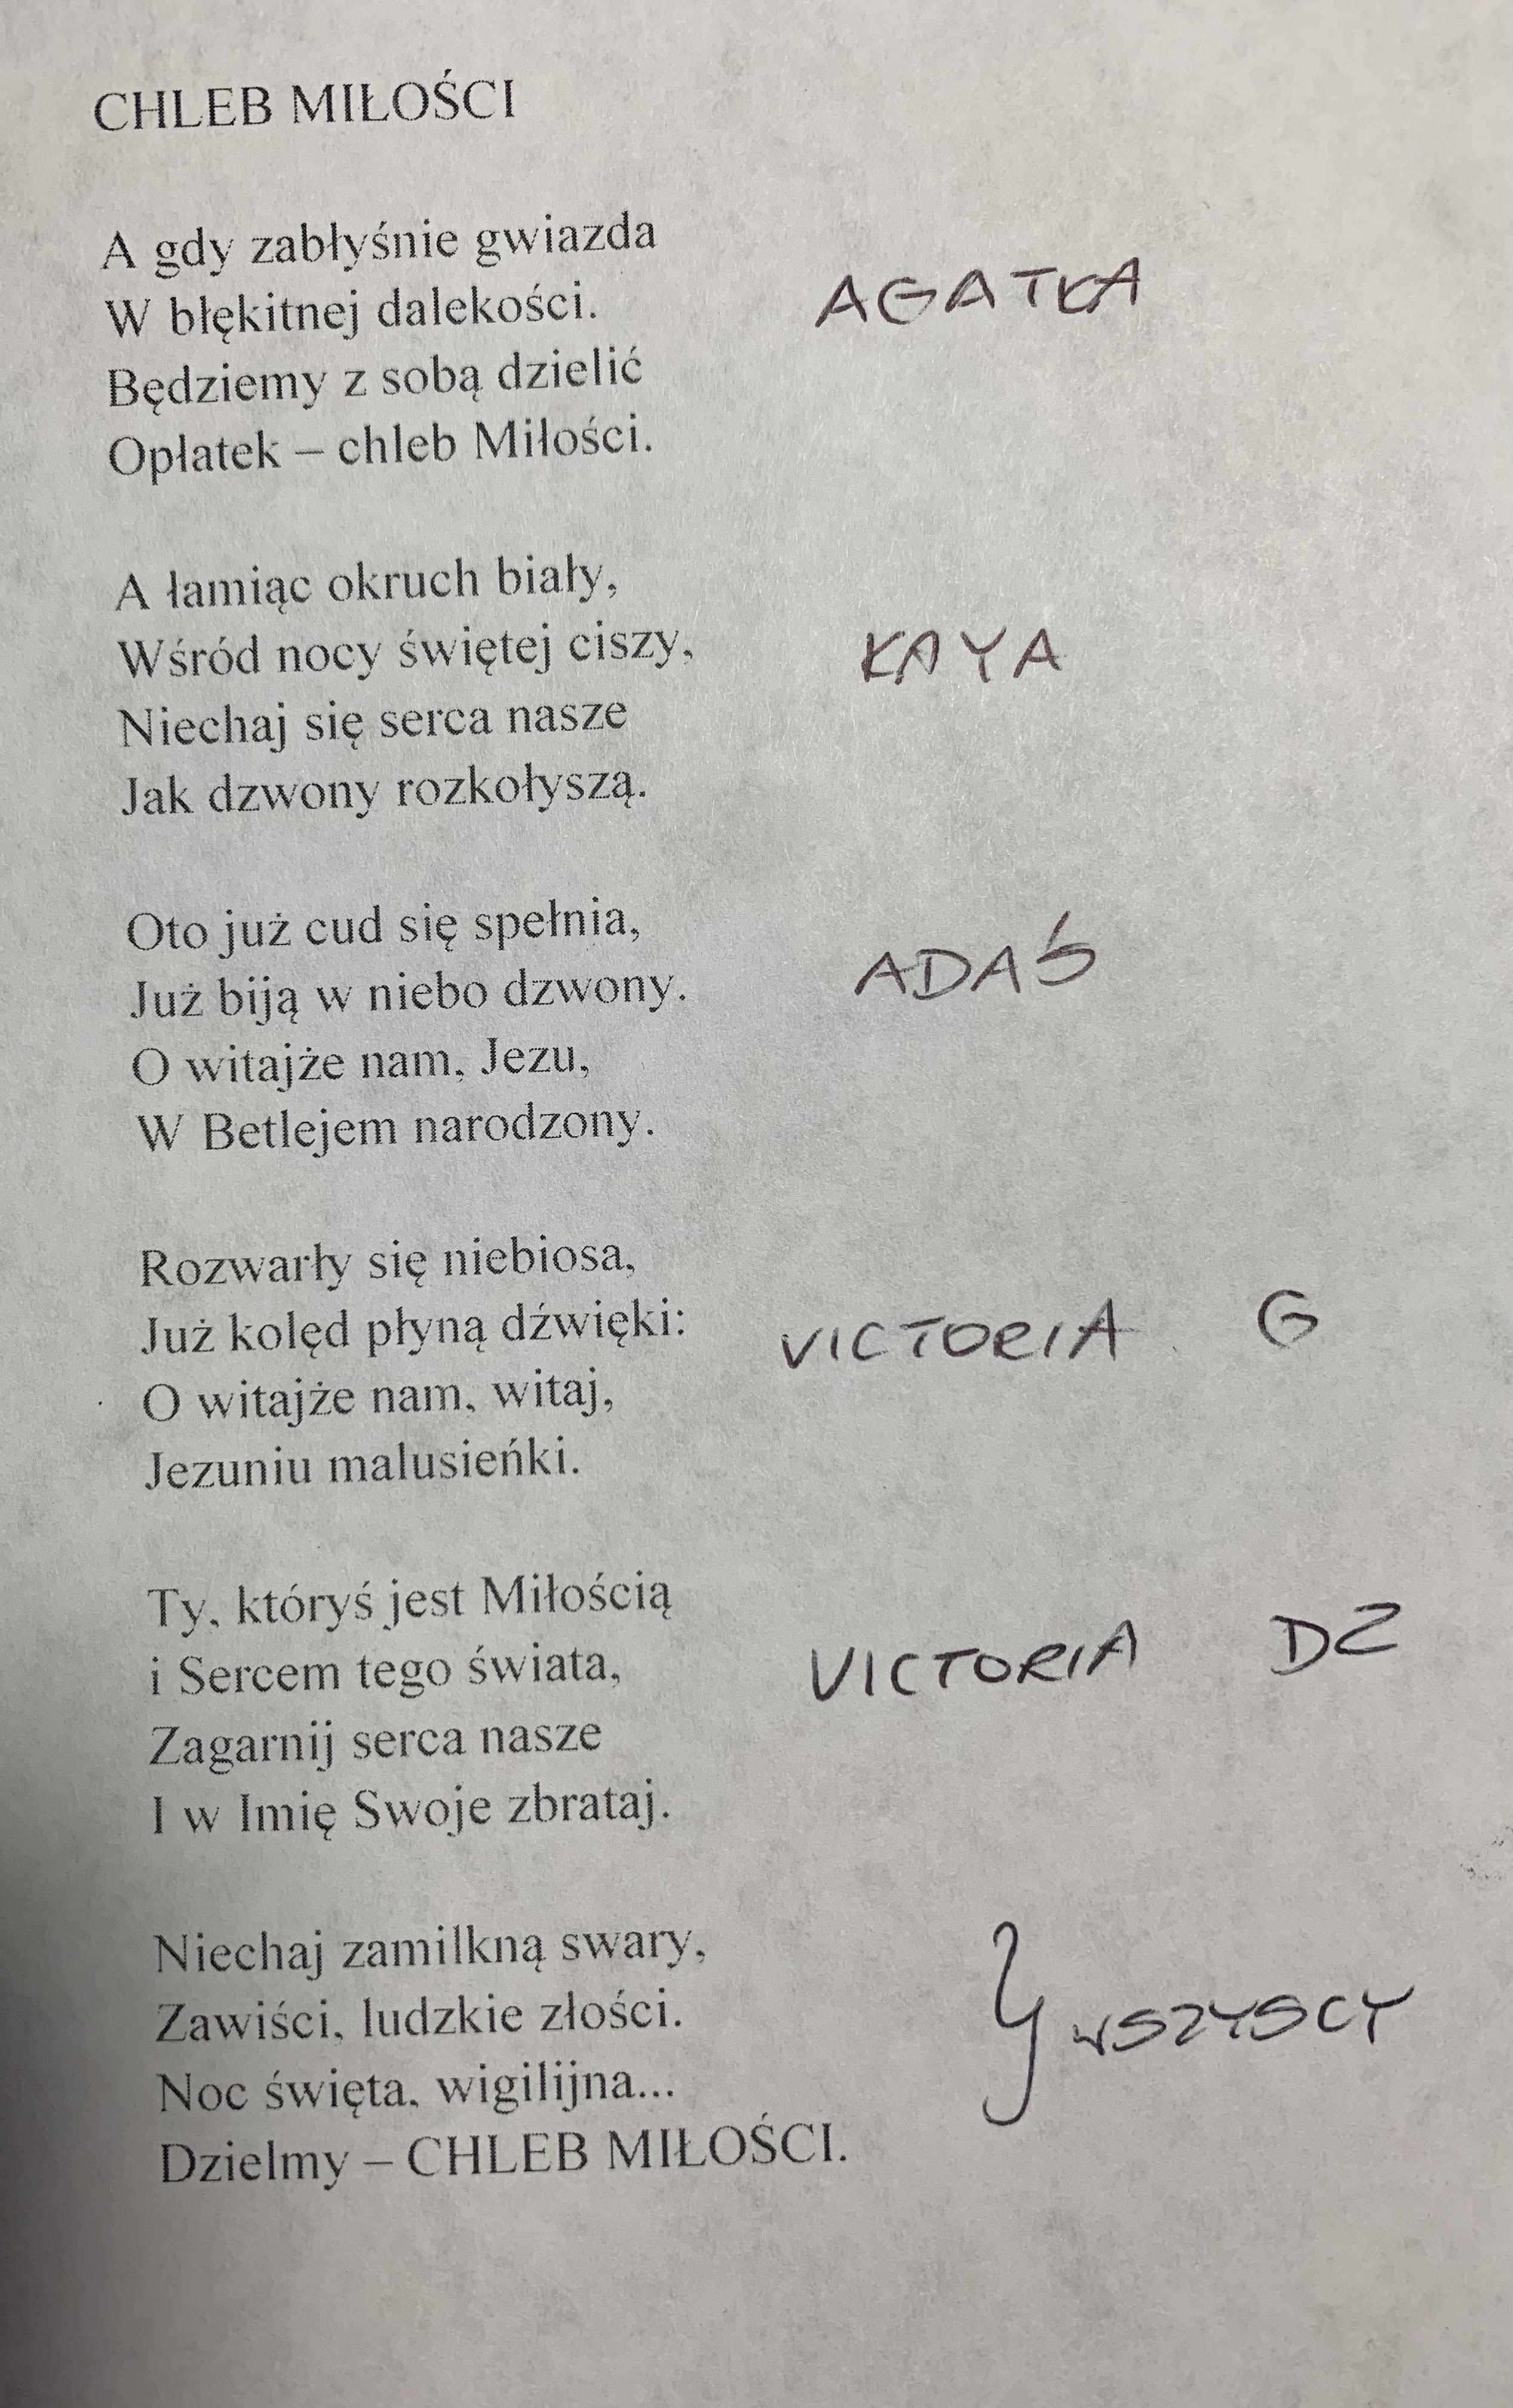 CHLEB MIŁOŚCI
A gdy zabłyśnie gwiazda
W błękitnej dalekości.
Będziemy z sobą dzielić
Opłatek – chleb Miłości.
AGATKA
A łamiąc okruch biały,
Wśród nocy świętej ciszy,
Niechaj się serca nasze
Jak dzwony rozkołyszą.
KAYA
Oto już cud się spełnia,
Już biją w niebo dzwony.
O witajże nam, Jezu,
W Betlejem narodzony.
ADAŚ
Rozwarły się niebiosa,
Już kolęd płyną dźwięki:
O witajże nam, witaj,
Jezuniu malusieńki.
VICTORIA G
Ty, któryś jest Miłością
i Sercem tego świata,
Zagarnij serca nasze
I w Imię Swoje zbrataj.
VICTORIA DZ
Niechaj zamilkną swary,
Zawiści, ludzkie złości.
Noc święta, wigilijna...
Dzielmy – CHLEB MIŁOŚCI.
WSZYSCY